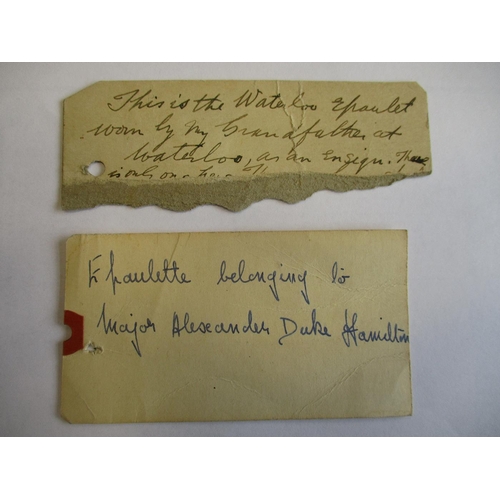 This is the Waterloo Epaulet
worn by my Grandfather at
Waterloo, as an Ensign. There
is only one
Epaulette belonging to
Major Alexander Duke Hamilton